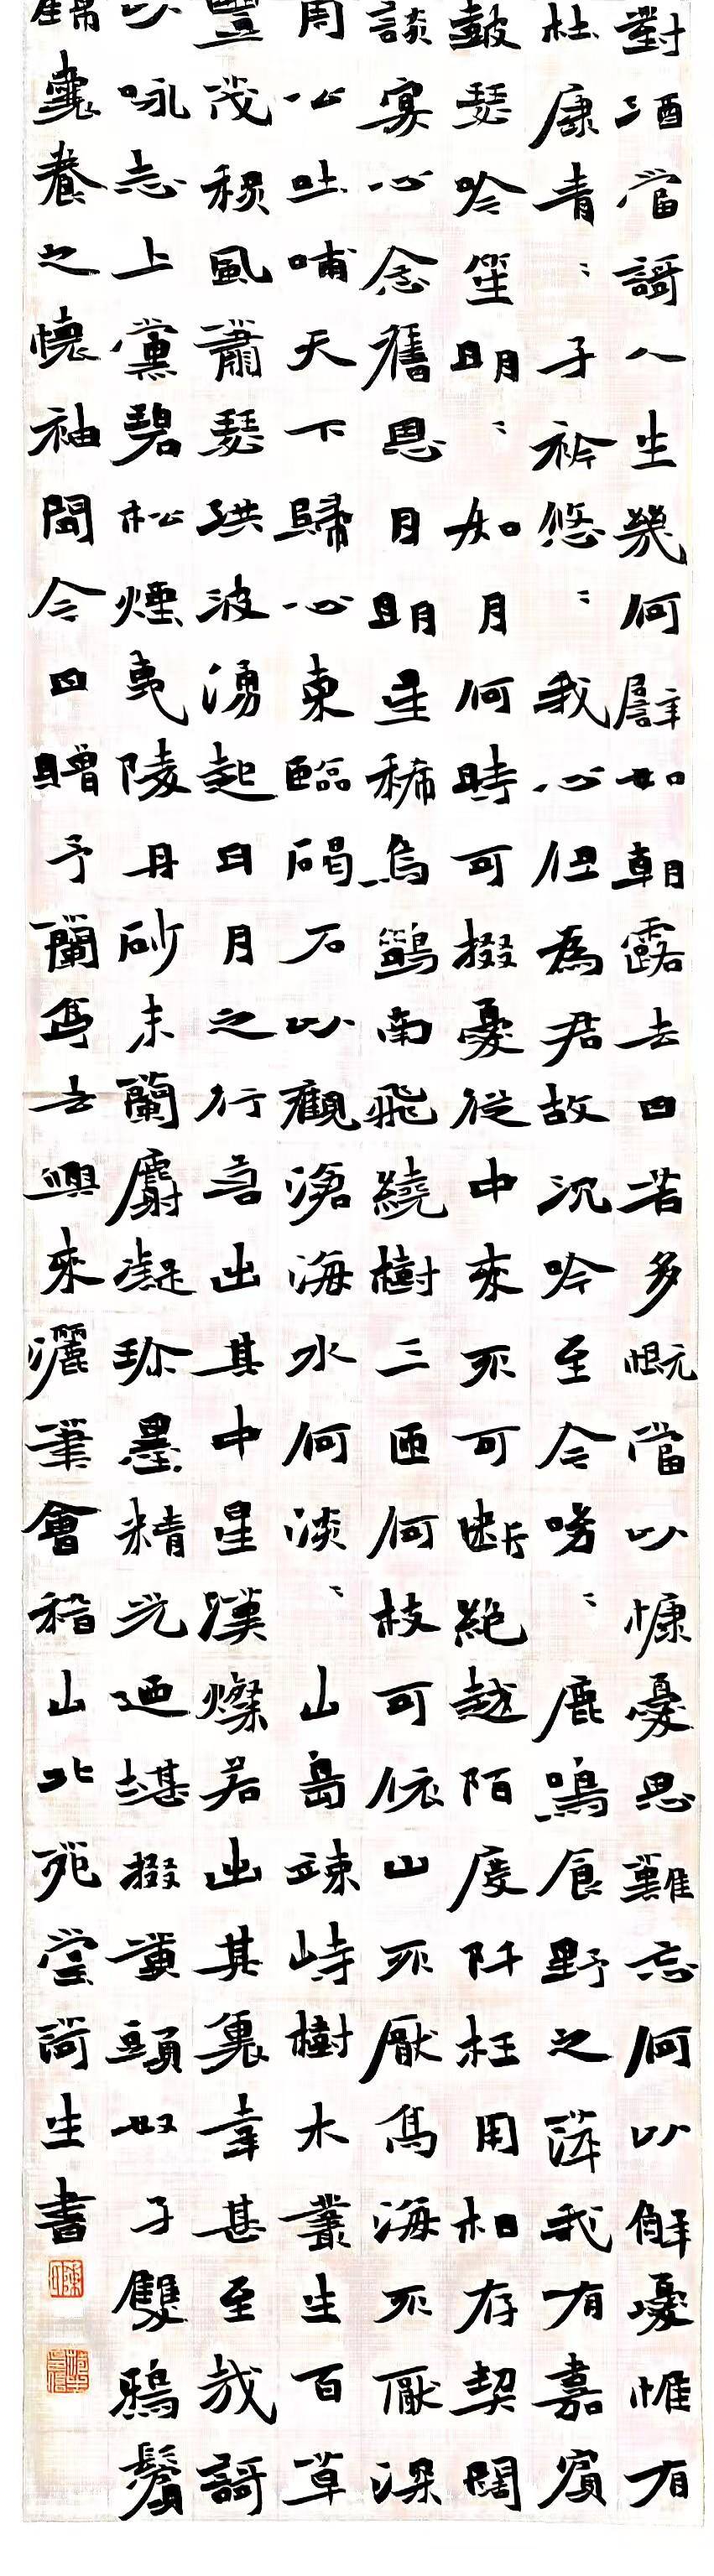 對酒當謌人生幾何譬如朝露去日苦多慨當以慷憂思難忘何以解憂惟有
杜康青〻子衿悠〻我心但為君故沉吟至今呦〻鹿鳴食野之萍我有嘉賓
鼓瑟吟笙明〻如月何時可掇憂從中來不可斷絕越陌度阡枉用相存契闊
談宴心念舊恩月明星稀烏鵲南飛繞樹三匝何枝可依山不厭高海不厭深
周公吐哺天下歸心東臨碣石以觀滄海水何淡〻山島竦峙樹木叢生百草
豐茂秋風蕭瑟洪波湧起日月之行若出其中星漢燦若出其裏幸甚至哉謌
以咏志上黨碧松煙夷陵丹砂末蘭麝凝珍墨精光迺堪掇黃頭奴子雙鴉鬟
錦囊養之懷袖間今日贈予蘭亭去興來灑筆會稽山北堂生書